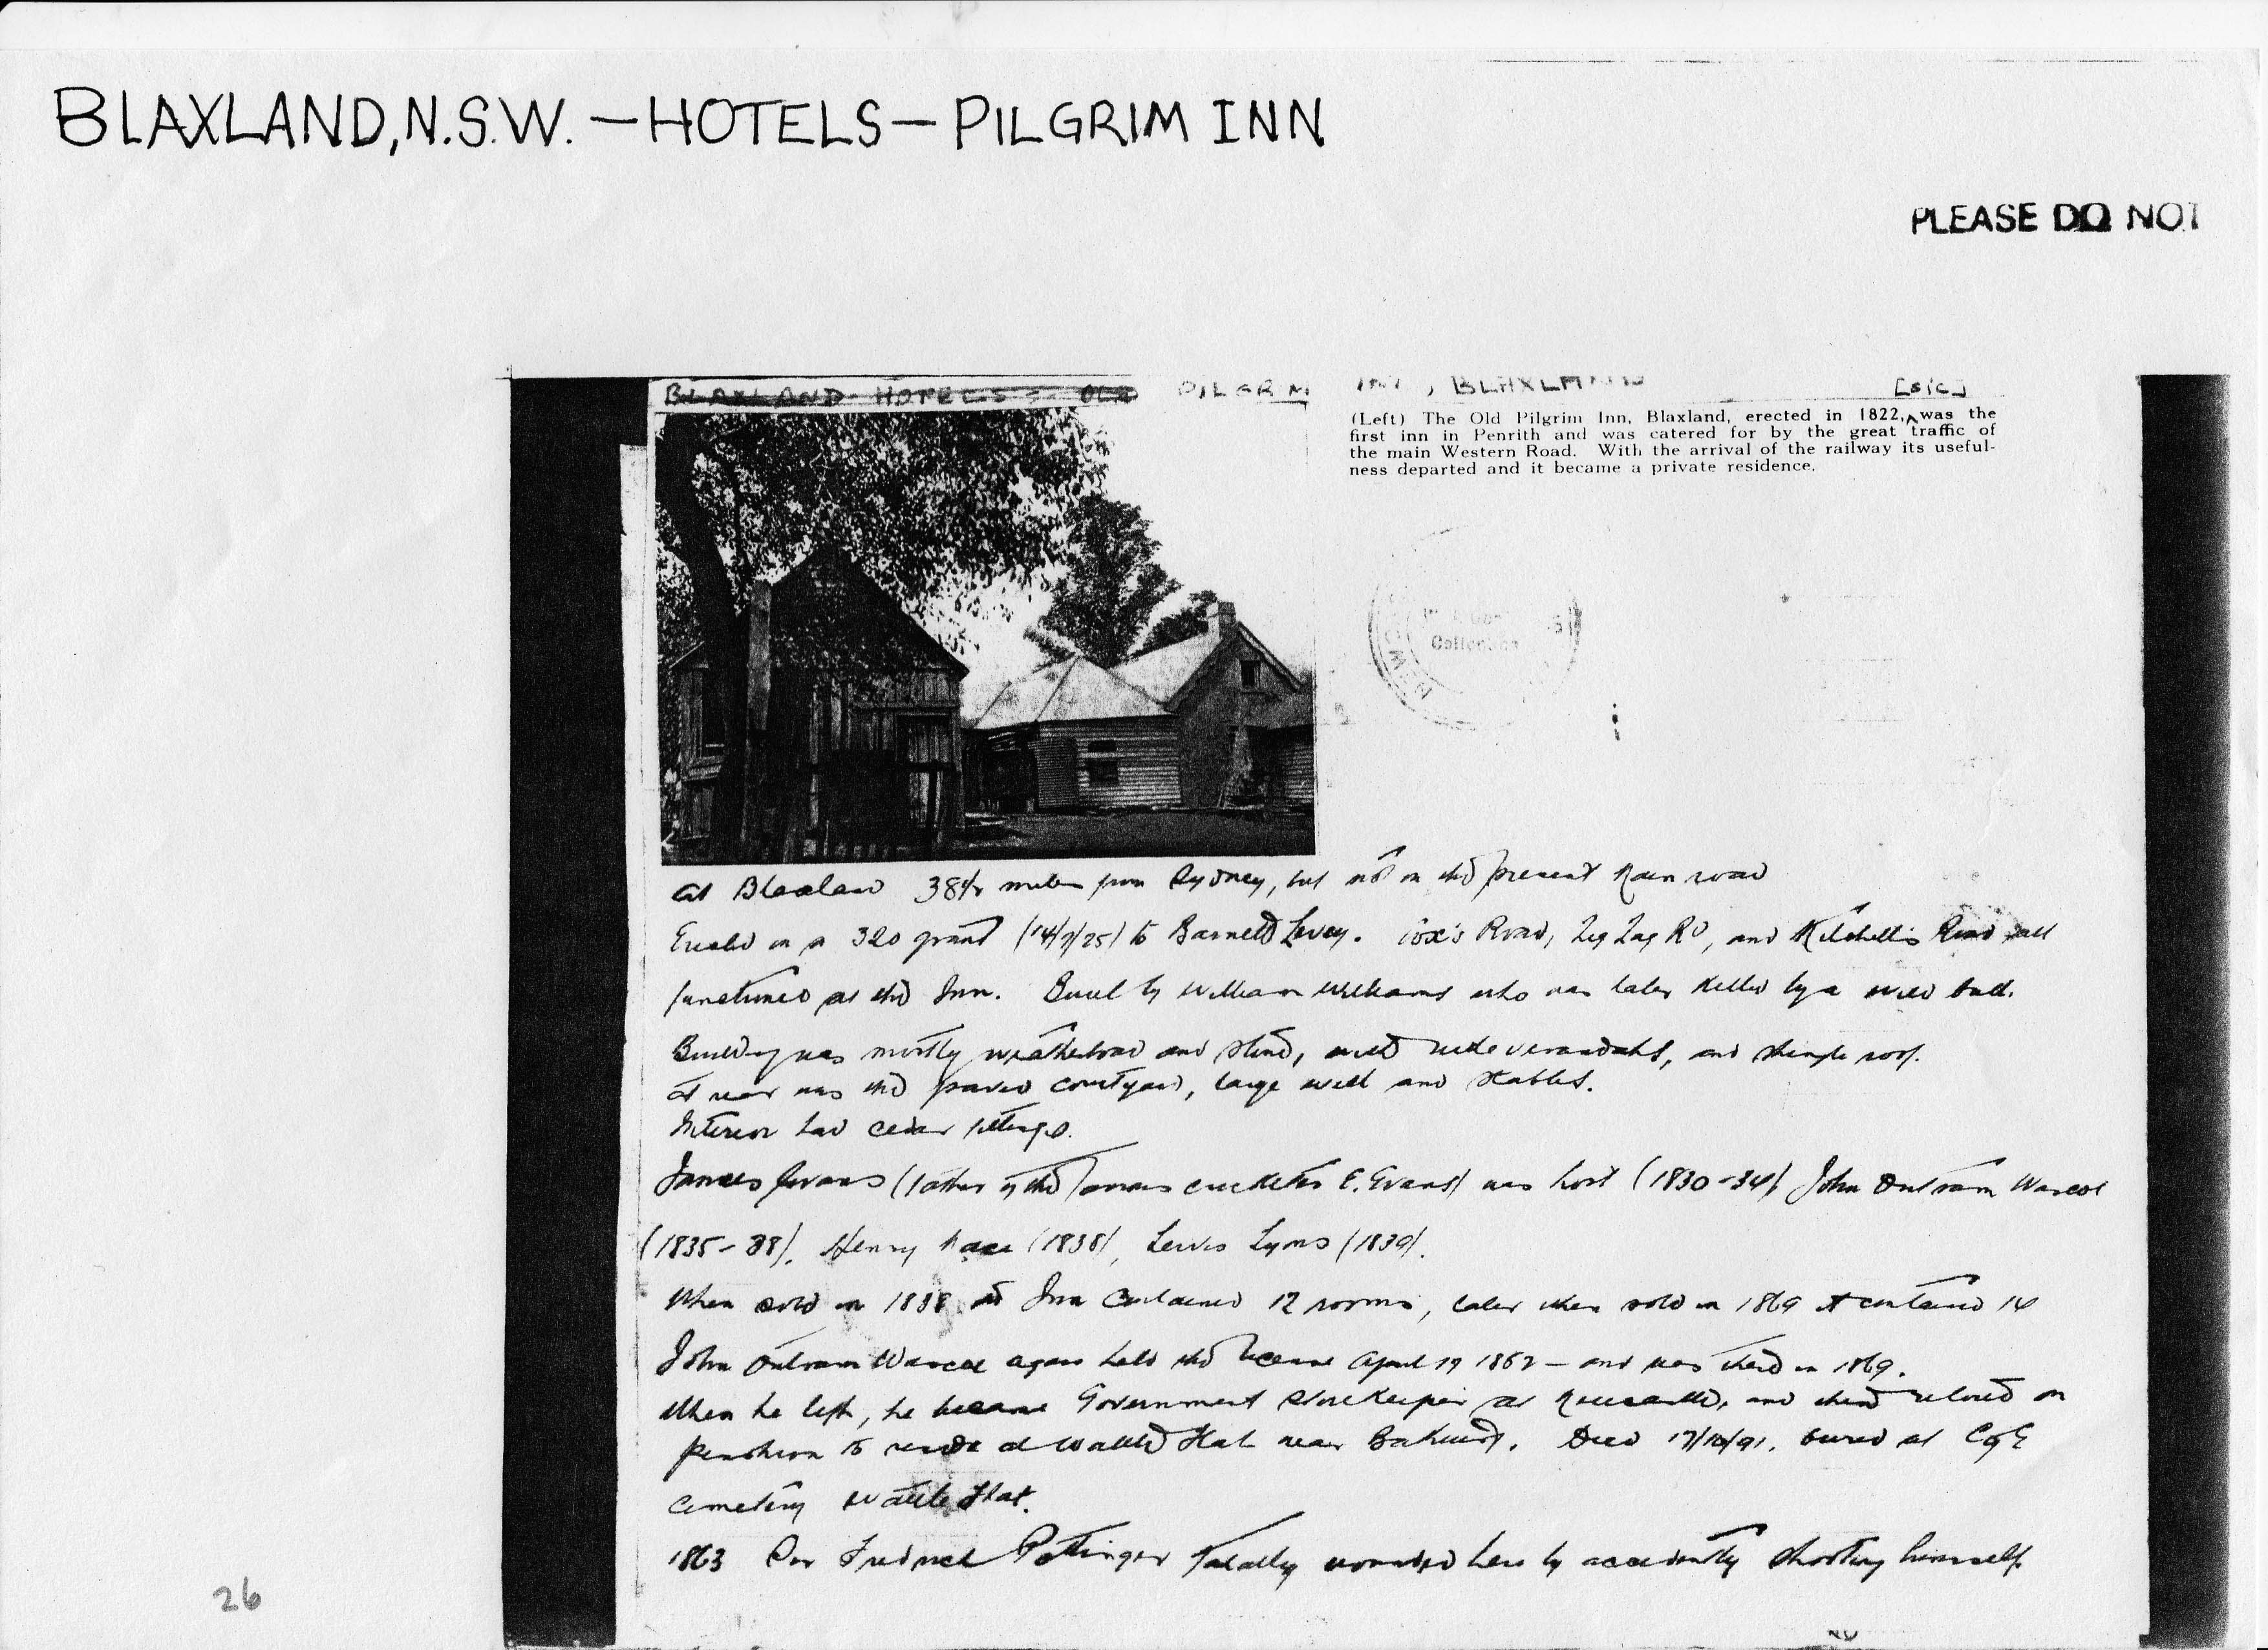 BLAXLAND, N.S.W. — HOTELS — PILGRIM INN
PLEASE DO NOT
BLAXLAND HOTELS OLD PILGRIM INN, BLAXLAND
[SIC]
(Left) The Old Pilgrim Inn, Blaxland, erected in 1822,^ was the
first inn in Penrith and was catered for by the great traffic of
the main Western Road. With the arrival of the railway its useful-
ness departed and it became a private residence.
Collection
At Blaxland 38½ miles from Sydney, but not on the present Main road
Erected on a 320 grant (14/7/25) to Barnett Levey. Cox's Road, Zig Zag Rd, and Mitchell's Road all
functioned at the Inn. Built by William Williams who was later killed by a wild bull.
Building was mostly weatherboard and stone, with wide verandahs, and shingle roof.
At rear was the paved courtyard, large well and stables.
Interior had cedar fittings.
James Evans (father of the famous cricketer E. Evans) was host (1830-34) John Outram Wascoe
(1835-38). Henry (1838), Lewis Lyons (1839).
When sold in 1838 the Inn contained 12 rooms, later when sold in 1869 it contained 14
John Outram Wascoe again held the license April 19 1862 — and was there in 1869.
When he left, he became Government Storekeeper at Newcastle, and then retired on
pension to reside at Wattle Flat near Bathurst. Died 17/10/91. buried at C of E
Cemetery Wattle Flat.
1863 Sir Frederick Pottinger fatally wounded here by accidently shooting himself.
26